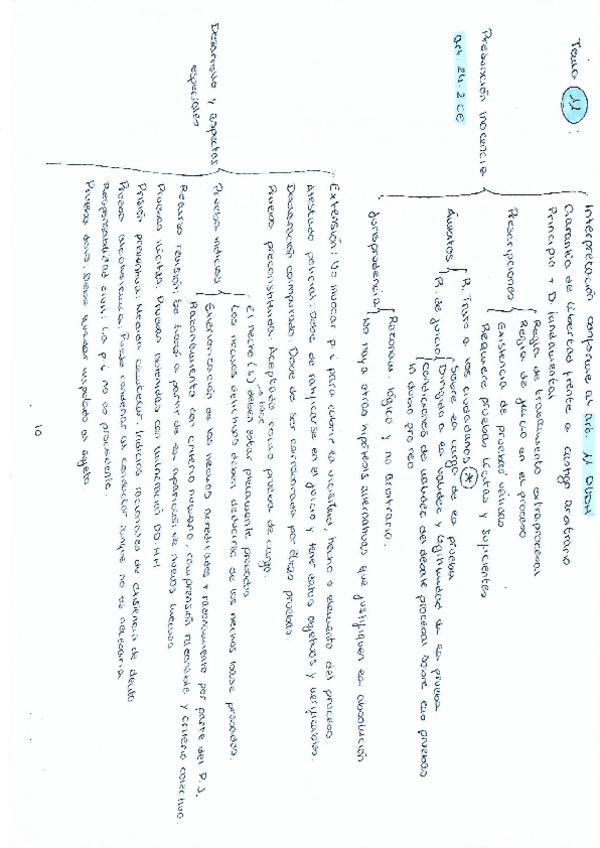 Tema 11:
Presunción inocencia
art. 24.2 CE
Interpretación conforme al art. 11 DUDH
Garantía de libertad frente a castigo arbitrario
Principio + D. fundamental
Prescripciones
Regla de tratamiento extraprocesal
Regla de juicio en el proceso
Existencia de pruebas válidas
Requiere pruebas lícitas y suficientes
Ámbitos
R. Trato a los ciudadanos *
R. de juicio
Sobre la carga de la prueba
Dirigido a la validez y legitimidad de la prueba
Condiciones de validez del debate procesal sobre las pruebas
In dubio pro reo
Jurisprudencia
Razonam. lógico y no arbitrario.
No haya otras hipótesis alternativas que justifiquen la absolución
Desarrollo y aspectos
especiales
Extensión: No invocar p.i para cubrir la incierta, hecho o elemento del proceso.
Atestado policial: Debe de ratificarse en el juicio y tener datos objetivos y verificables.
Declaración coimputado: Debe de ser corroborada por otras pruebas.
Prueba preconstituida: Aceptada como prueba de cargo.
Prueba indicios
El hecho (s) base deben estar plenamente probados
Los hechos delictivos deben deducirse de los hechos base probados.
Exteriorización de los hechos acreditados + razonamiento por parte del P.J.
Razonamiento con criterio humano, comprensión razonable y criterio colectivo.
Recurso revisión: Se hará a partir de la aparición de nuevos hechos
Pruebas ilícitas: Pruebas obtenidas con vulneración DD.HH
Prisión preventiva: Medida cautelar. Indicios racionales de existencia de delito
Prueba alcoholemia: Puede condenar al conductor aunque no es necesaria
Responsabilidad civil: La p.i no es procedente.
Prueba dolo: Debe quedar imputado al sujeto.
10